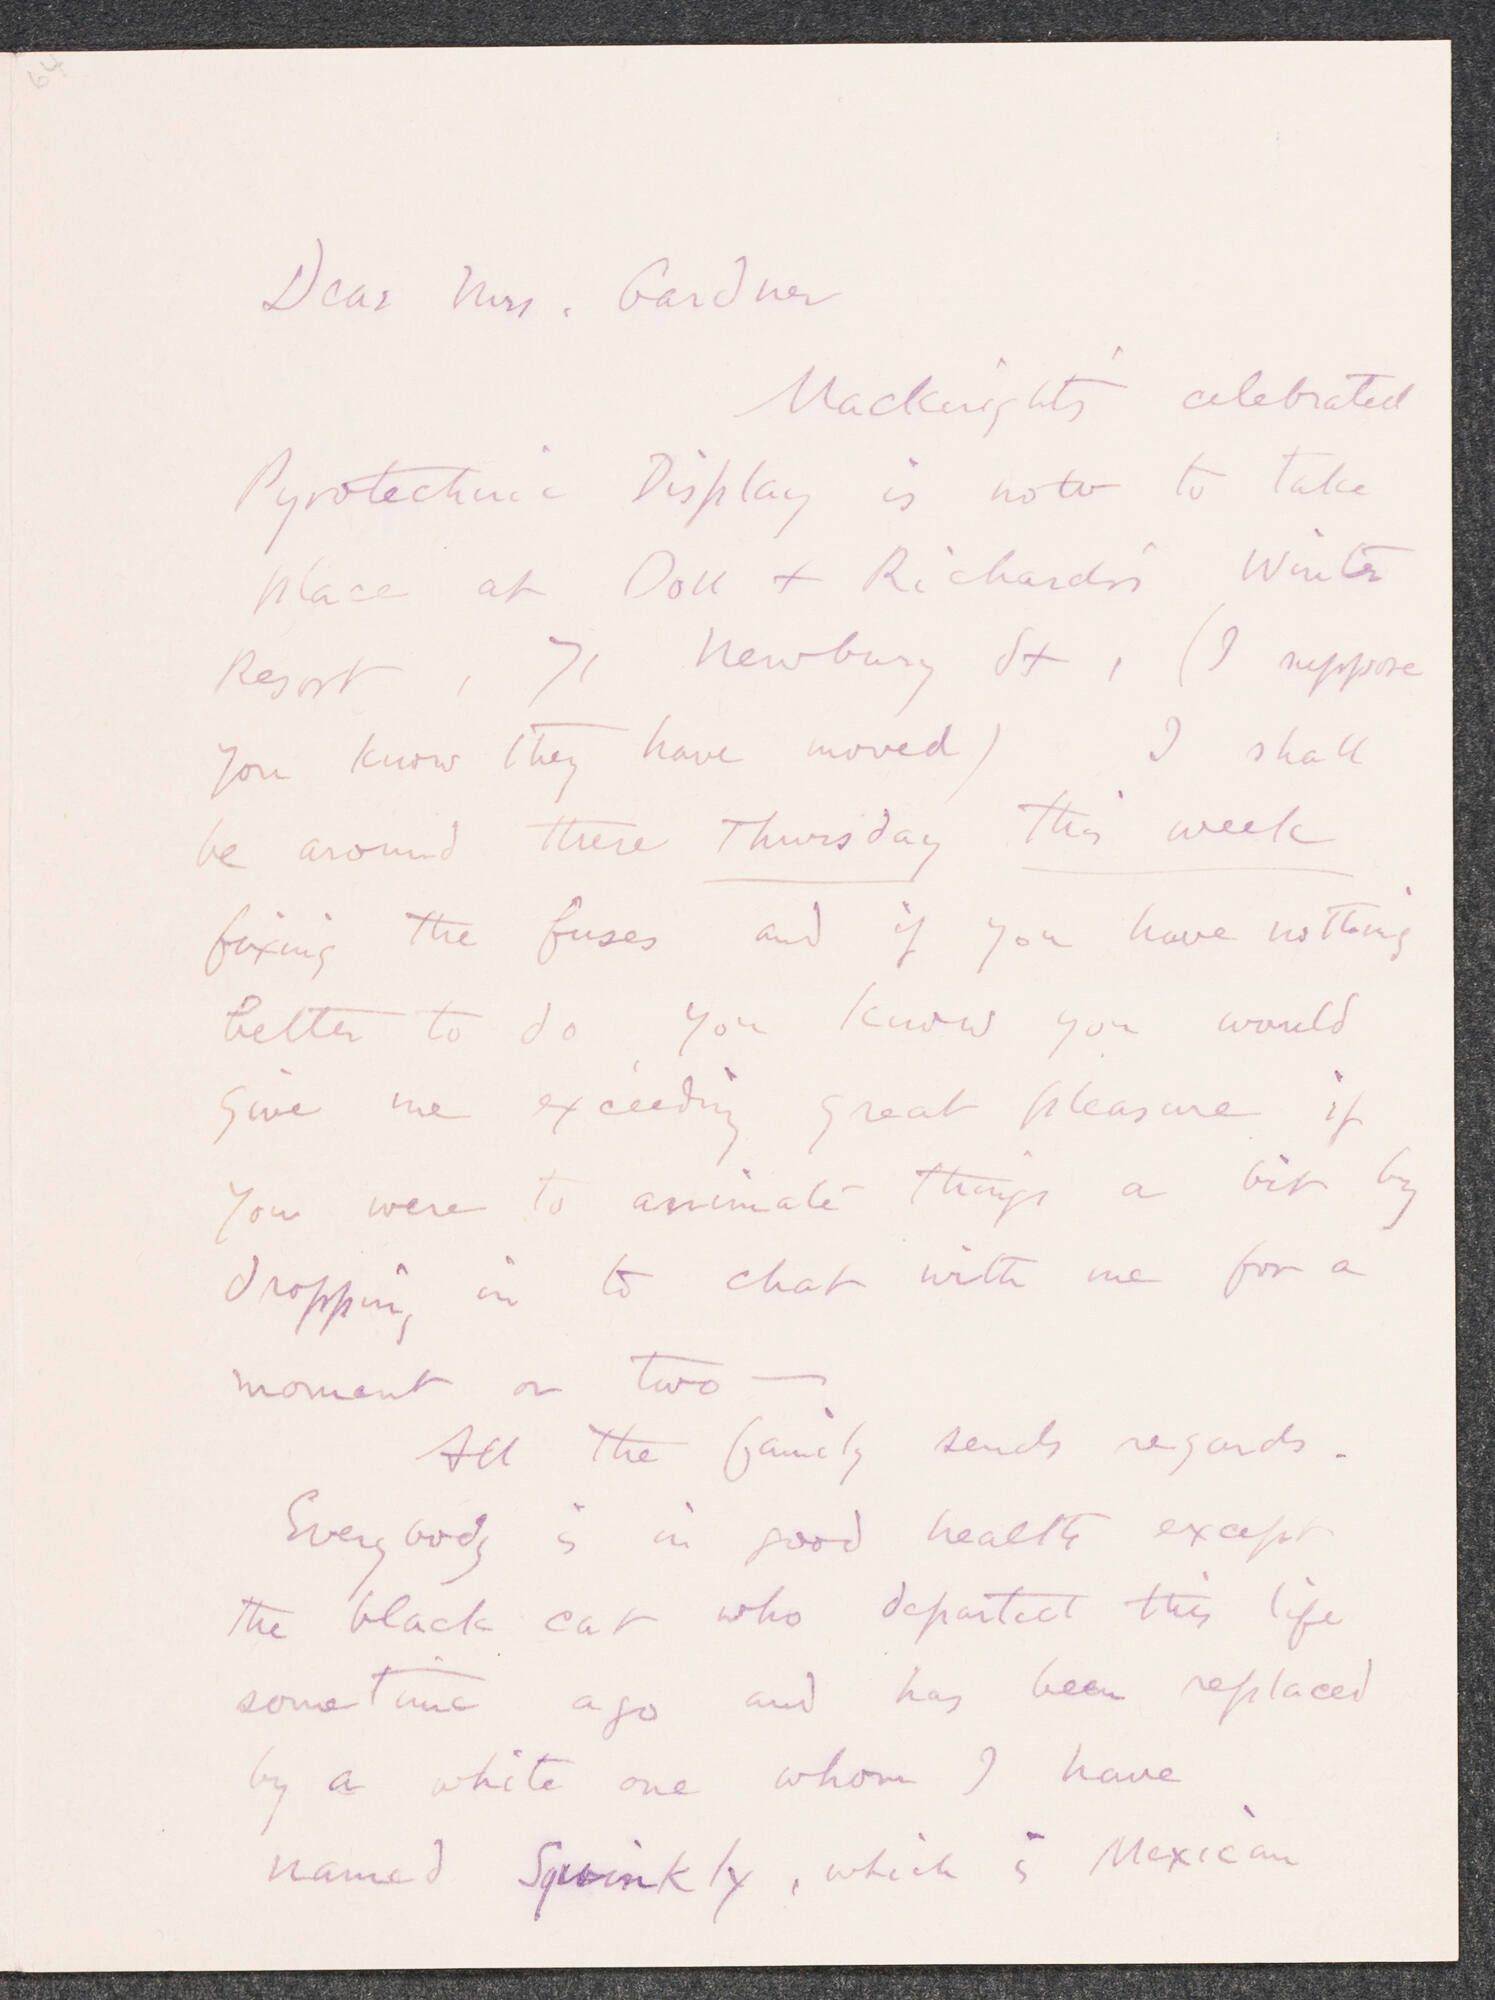 64
Dear Mrs. Gardner
Macknight's celebrated
Pyrotechnic Display is now to take
place at Doll + Richards's Winter
Resort, 71 Newbury St, (I suppose
you know they have moved) I shall
be around there Thursday this week
fixing the fuses and if you have nothing
better to do, you know you would
give me exceeding great pleasure if
you were to animate things a bit by
dropping in to chat with me for a
moment or two —
All the family sends regards.
Everybody is in good health except
the black cat who departed this life
sometime ago and has been replaced
by a white one whom I have
named Squinkly, which is Mexican